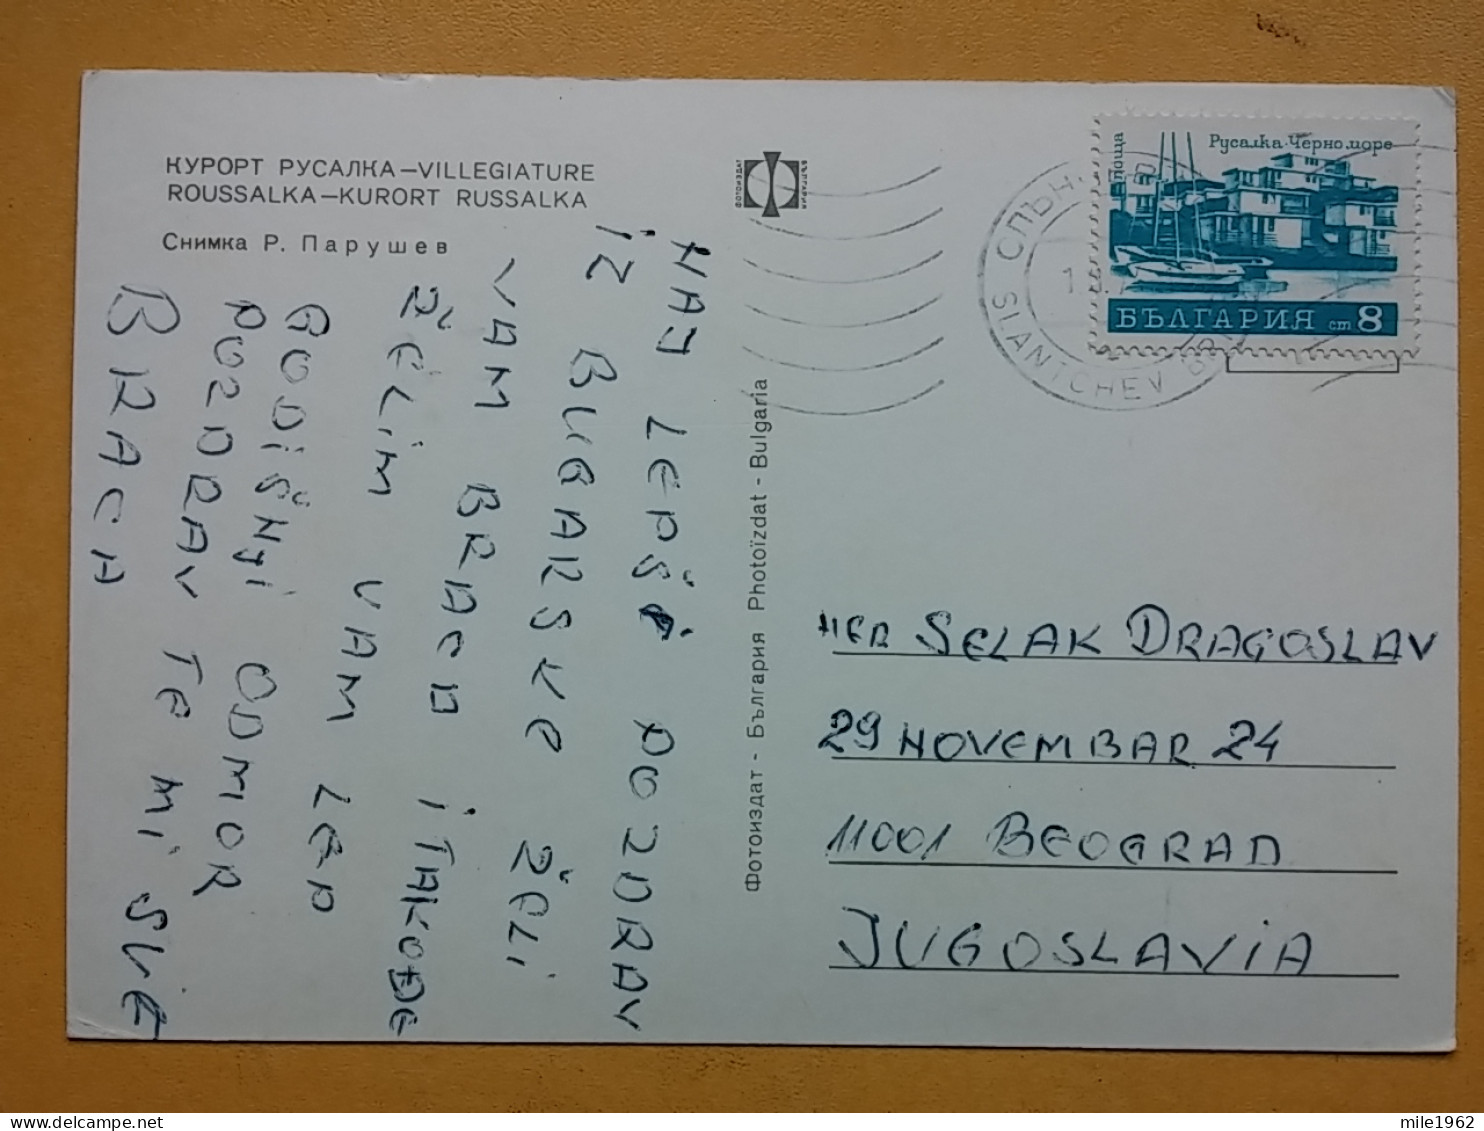 КУРОРТ РУСАЛКА—VILLEGIATURE
ROUSSALKA—KURORT RUSSALKA
Снимка Р. Парушев
NAJ LEPŠE POZDRAV
iZ BUGARSKE ŽELi
VAM BRACO i TAKOĐE
ŽELiM VAM LEP
GODiŠNji ODMOR
POZDRAV TE Mi SVE
BRACA
ФОТОИЗДАТ
БЪЛГАРИЯ
Фотоиздат - България Photoïzdat - Bulgaria
поща
Русалка·Черно море
БЪЛГАРИЯ ст 8
СЛЪН
SLANTCHEV
HER SELAK DRAGOSLAV
29 NOVEMBAR 24
11001 BEOGRAD
JUGOSLAViA
mile1962